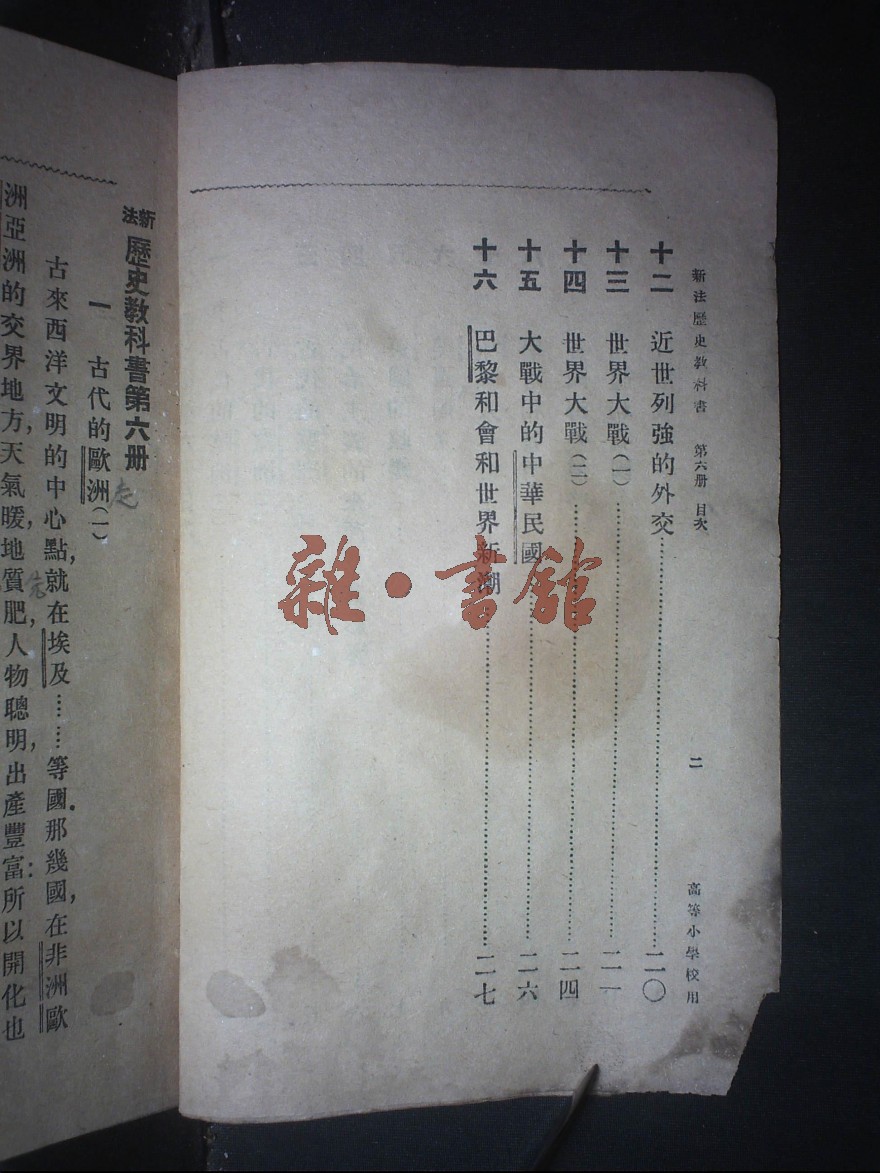 新法歷史敎科書 第六册 目次 二 高等小學校用
十二 近世列強的外交……二〇
十三 世界大戰(一)……二一
十四 世界大戰(二)……二四
十五 大戰中的中華民國……二六
十六 巴黎和會和世界新潮……二七
雜·書館
新法歷史敎科書第六册
一 古代的歐洲(一)
古來西洋文明的中心點,就在埃及……等國.那幾國,在非洲歐
洲亞洲的交界地方,天氣暖,地質肥,人物聰明,出產豐富:所以開化也